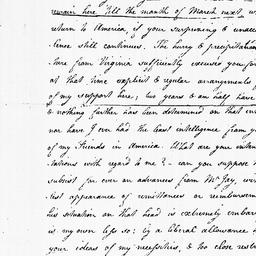 remain here 'till the months of March next, w
return to America, if your surprising & unacco
lence still continues. The hurry & precipitation
ture from Virginia sufficiently excused you fo
at that time explicit & regular arrangements
of my support here, two years & an half have
& nothing farther has been determined on that su
nor have I ever had the least intelligence from y
of my Friends in America. What are your inten
tations with regard to me? - can you suppose
subsist for ever on advances from Mr Jay, wi
least appearance of remittances or reimbursem
his situation on that head is extremely embarr
is my own less so: by a liberal allowance
your ideas of my necessities, & too close rest